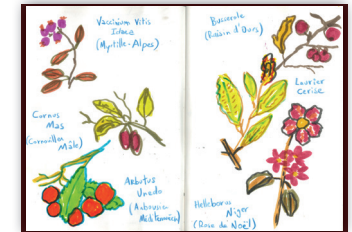 Vaccinium Vitis
Idaea
(Myrtille-Alpes)
Cornus
Mas
(Cornouiller
Mâle)
Arbutus
Unedo
(Arbousier
Méditerranéen)
Busserole
(Raisin d'Ours)
Laurier
Cerise
Helleborus
Niger
(Rose de Noël)